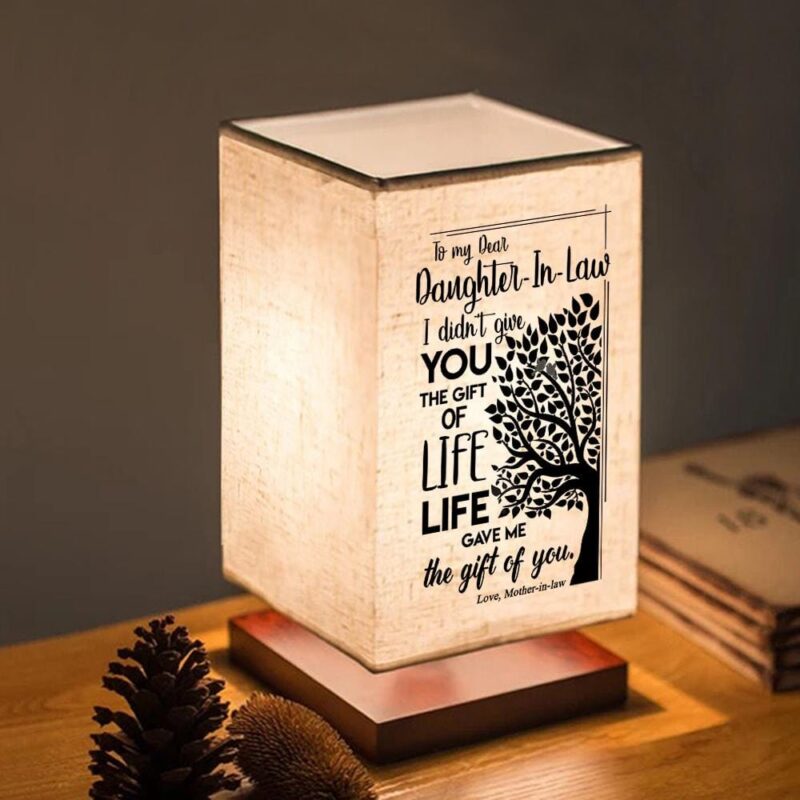 To my Dear
Daughter-In-Law
I didn't give
YOU
THE GIFT
OF
LIFE
LIFE
GAVE ME
the gift of you.
Love, Mother-in-law